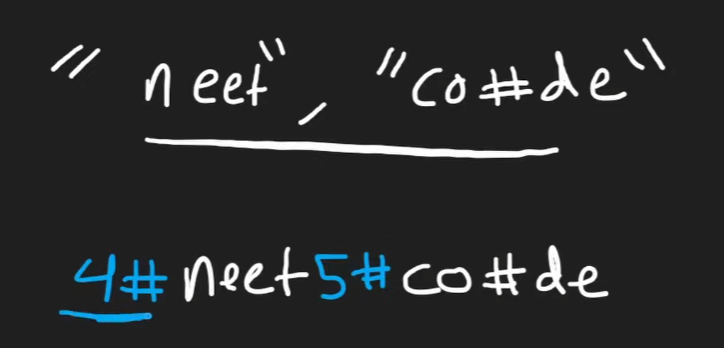 "neet", "co#de"
4#neet5#co#de